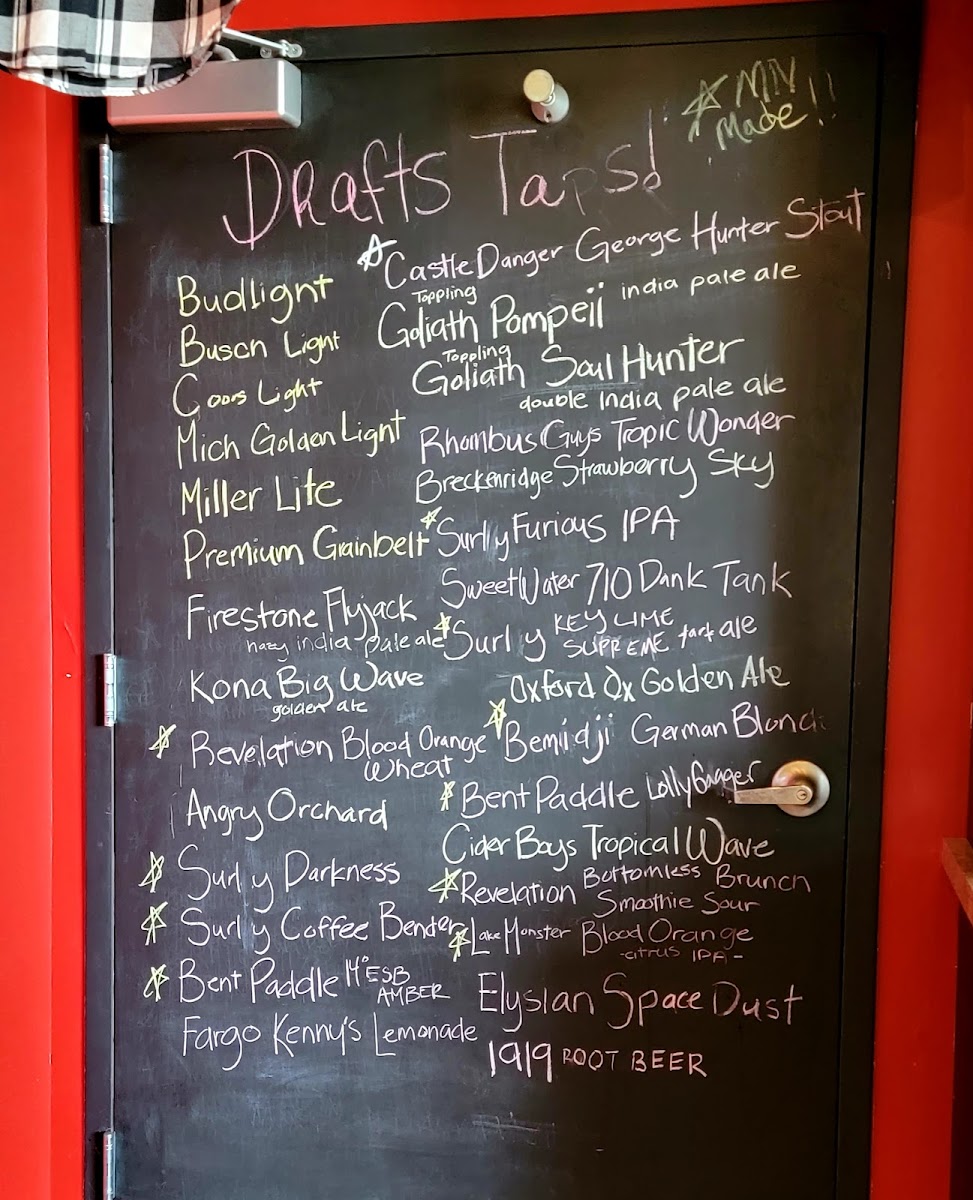 ☆ MN
Made!!
Drafts Taps!
Budlight
Busch Light
Coors Light
Mich Golden Light
Miller Lite
Premium Grainbelt
Firestone Flyjack
hazy india pale ale
Kona Big Wave
golden ale
☆ Revelation Blood Orange
Wheat
Angry Orchard
☆ Surly Darkness
☆ Surly Coffee Bender
☆ Bent Paddle 14° ESB
AMBER
Fargo Kenny's Lemonade
☆ Castle Danger George Hunter Stout
Toppling
Goliath Pompeii india pale ale
Toppling
Goliath Soul Hunter
double India pale ale
Rhombus Guys Tropic Wonder
Breckenridge Strawberry Sky
☆ Surly Furious IPA
SweetWater 710 Dank Tank
☆ Surly KEY LIME
SUPREME tart ale
Oxford Ox Golden Ale
☆ Bemidji German Blond
☆ Bent Paddle LollyGagger
Cider Boys Tropical Wave
☆ Revelation Bottomless Brunch
Smoothie Sour
☆ Lake Monster Blood Orange
-citrus IPA-
Elysian Space Dust
1919 ROOT BEER